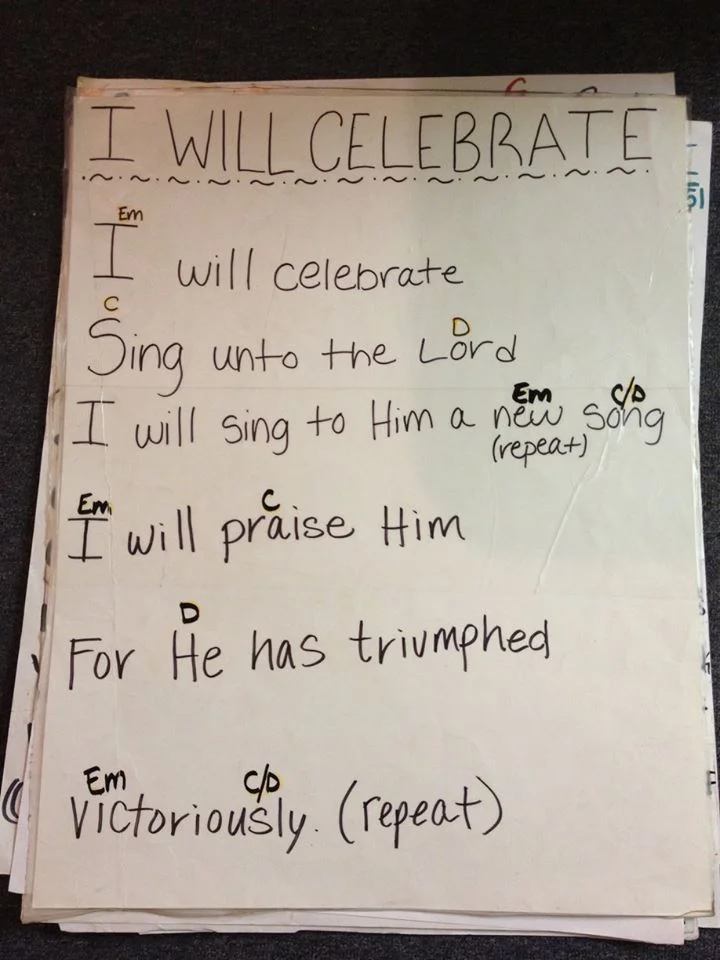 I WILL CELEBRATE
Em
I will celebrate
C D
Sing unto the Lord
Em C/D
I will sing to Him a new song
(repeat)
Em C
I will praise Him
D
For He has triumphed
Em C/D
Victoriously. (repeat)
51